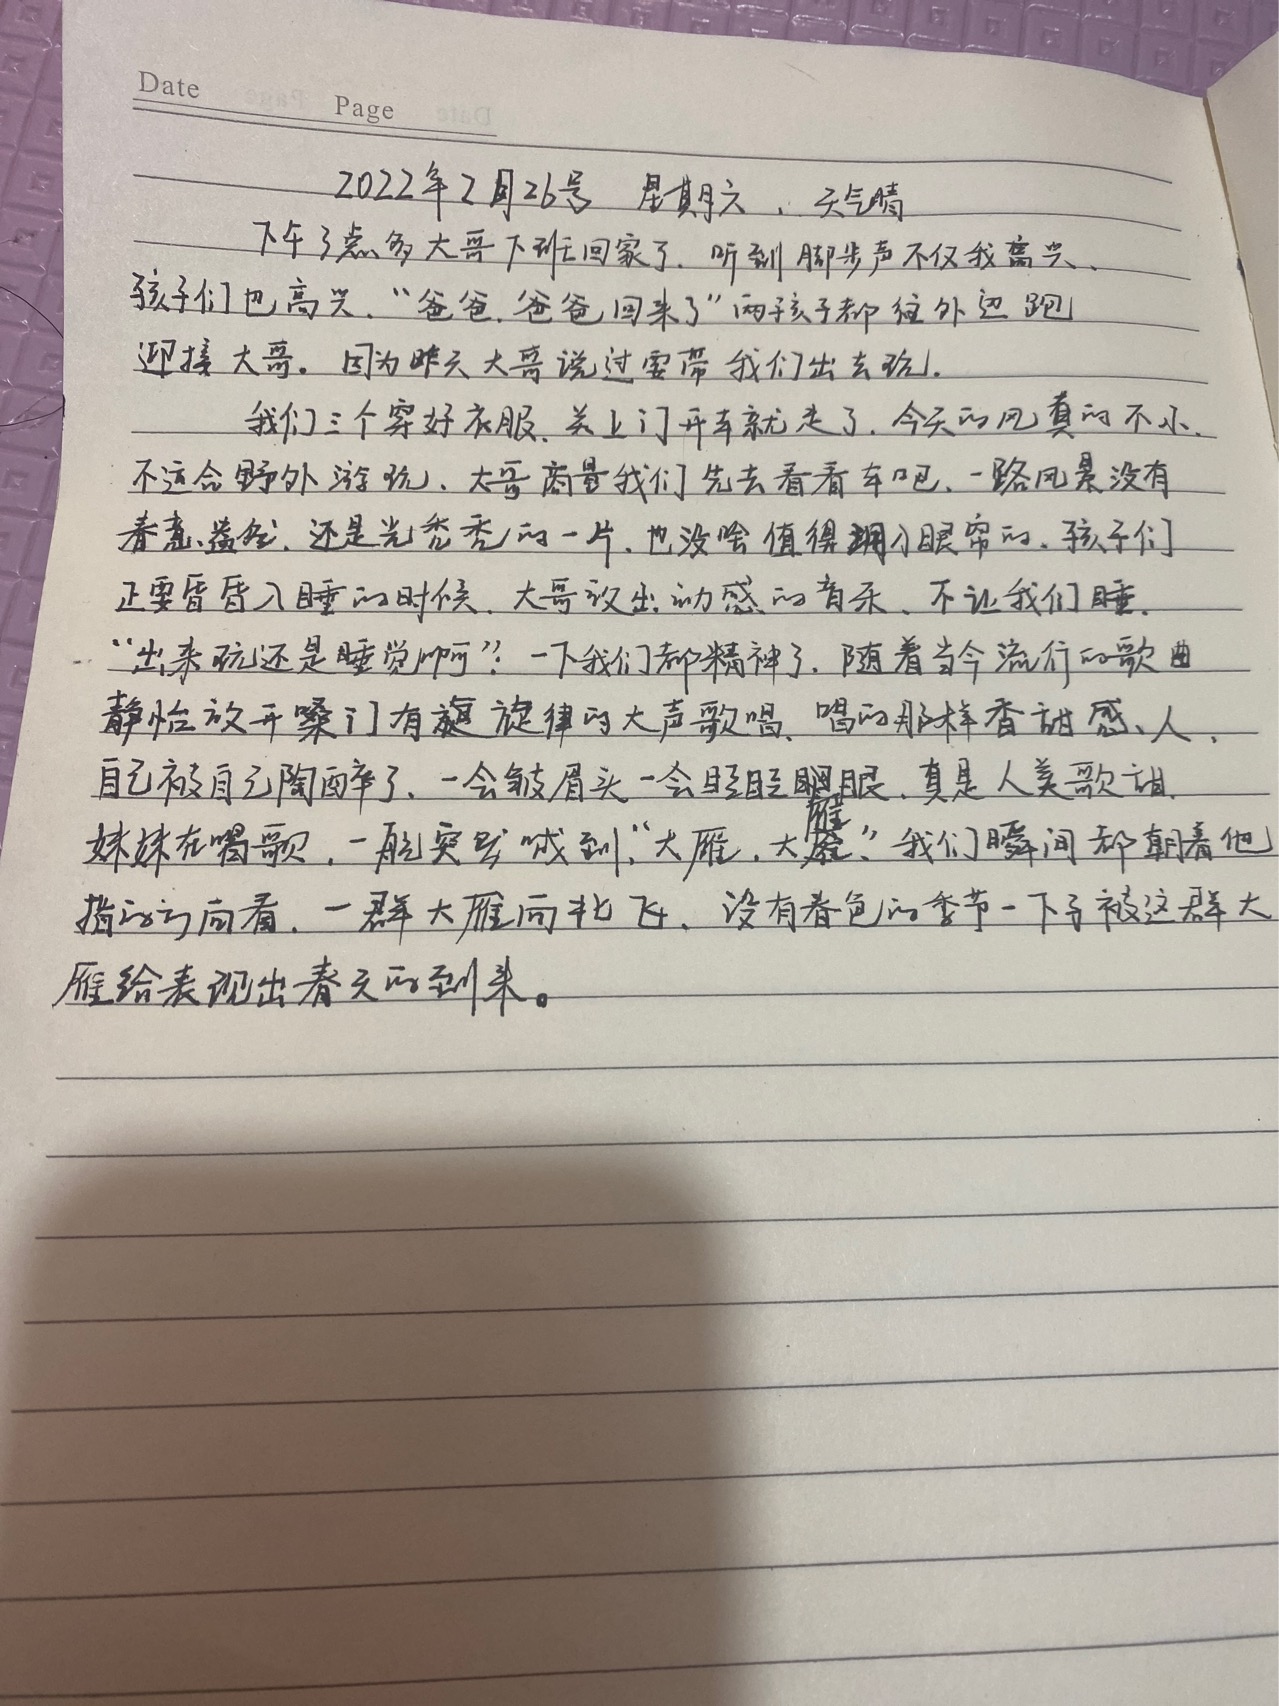 Date
Page
2022年2月26号 星期六、天气晴
下午3点多大哥下班回家了、听到脚步声不仅我高兴、
孩子们也高兴、“爸爸、爸爸回来了”两孩子都往外边跑
迎接大哥。因为昨天大哥说过要带我们出去玩.
我们三个穿好衣服、关上门开车就走了、今天的风真的不小、
不适合野外游玩、大哥商量我们先去看看车吧、一路风景没有
春意盎然、还是光秃秃的一片、也没啥值得入眼帘的、孩子们
正要昏昏入睡的时候、大哥放出动感的音乐、不让我们睡、
“出来玩还是睡觉啊”？一下我们都精神了、随着当今流行的歌曲
静怡放开嗓门有旋律的大声歌唱、唱的那样香甜感人、
自己被自己陶醉了、一会皱眉头一会眨眨眼、真是人美歌甜、
妹妹在唱歌、一航突然喊到、“大雁、大雁”我们瞬间都朝着他
指的方向看、一群大雁向北飞、没有春色的季节一下子被这群大
雁给表现出春天的到来。